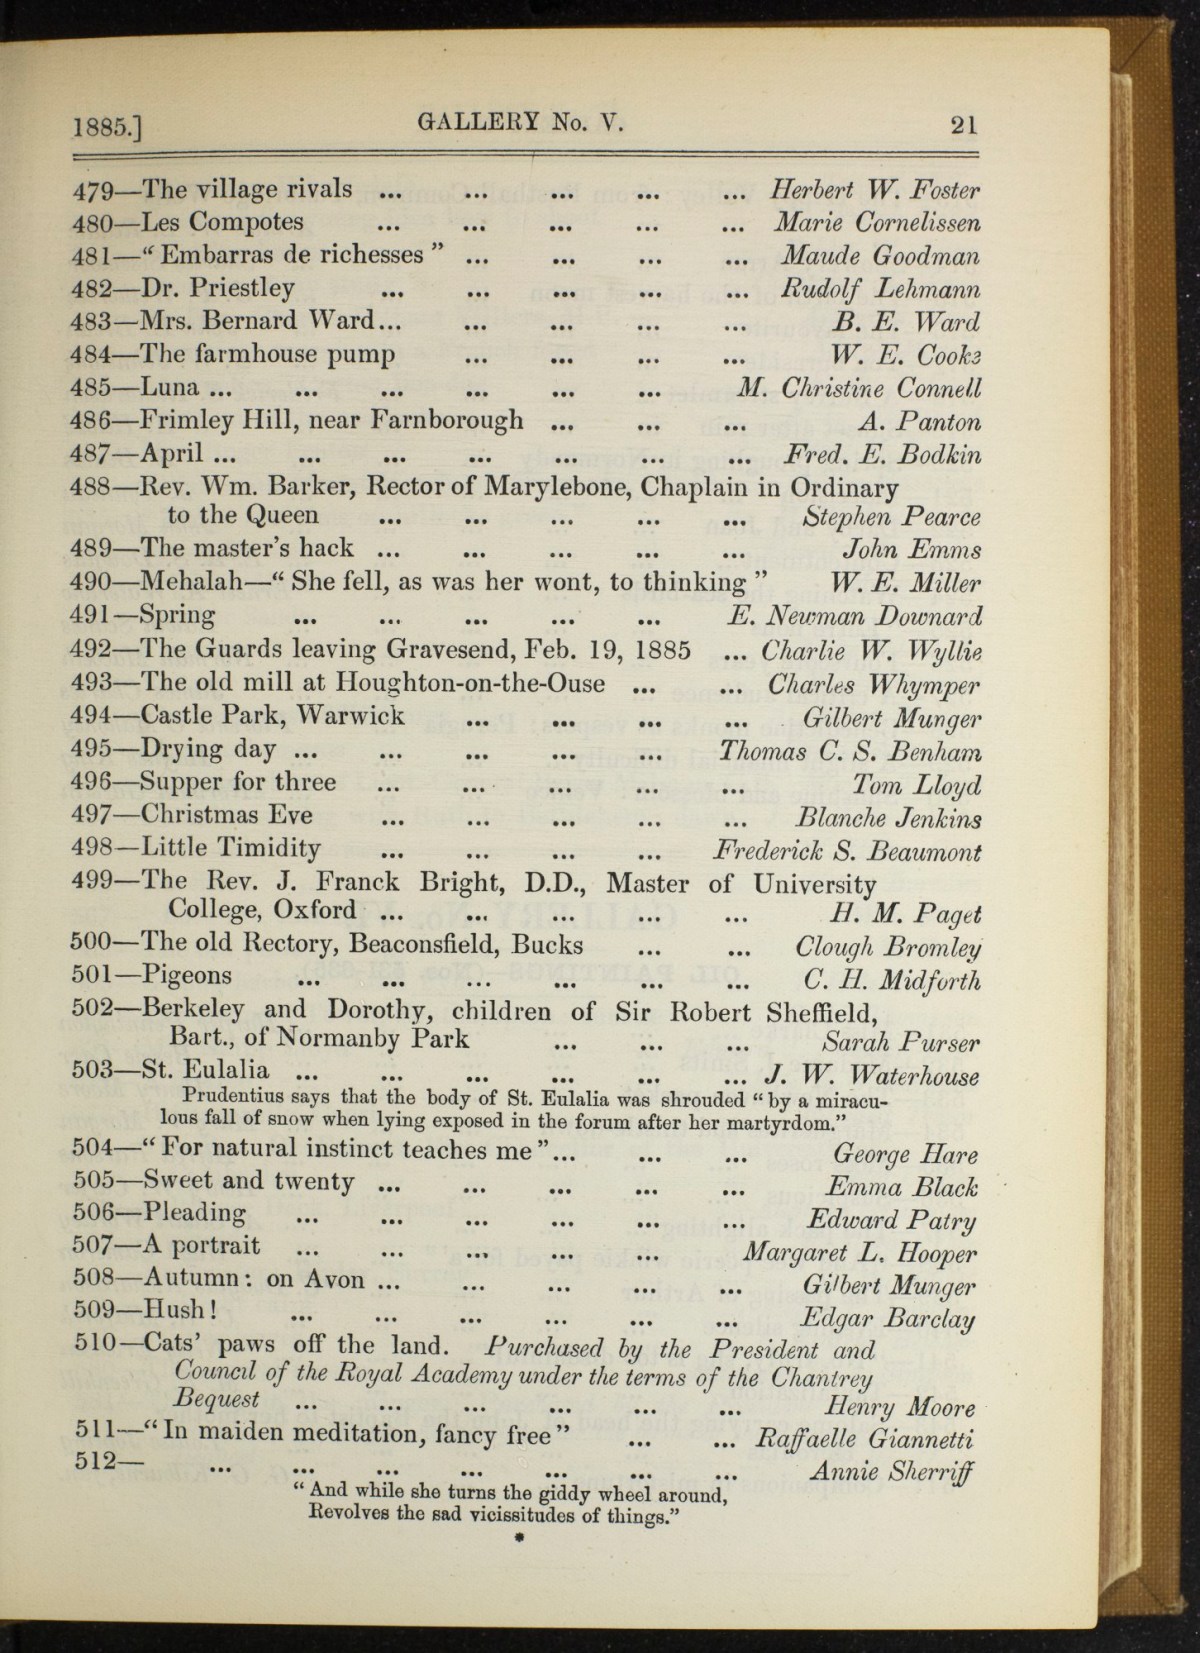 1885.] GALLERY No. V. 21
479—The village rivals ... ... ... ... ... Herbert W. Foster
480—Les Compotes ... ... ... ... ... Marie Cornelissen
481—“ Embarras de richesses ” ... ... ... ... Maude Goodman
482—Dr. Priestley ... ... ... ... ... Rudolf Lehmann
483—Mrs. Bernard Ward... ... ... ... ... B. E. Ward
484—The farmhouse pump ... ... ... ... W. E. Cooke
485—Luna ... ... ... ... ... ... M. Christine Connell
486—Frimley Hill, near Farnborough ... ... ... A. Panton
487—April ... ... ... ... ... ... ... Fred. E. Bodkin
488—Rev. Wm. Barker, Rector of Marylebone, Chaplain in Ordinary
to the Queen ... ... ... ... ... Stephen Pearce
489—The master's hack ... ... ... ... ... John Emms
490—Mehalah—“ She fell, as was her wont, to thinking ” W. E. Miller
491—Spring ... ... ... ... ... E. Newman Downard
492—The Guards leaving Gravesend, Feb. 19, 1885 ... Charlie W. Wyllie
493—The old mill at Houghton-on-the-Ouse ... ... Charles Whymper
494—Castle Park, Warwick ... ... ... ... Gilbert Munger
495—Drying day ... ... ... ... ... Thomas C. S. Benham
496—Supper for three ... ... ... ... ... Tom Lloyd
497—Christmas Eve ... ... ... ... ... Blanche Jenkins
498—Little Timidity ... ... ... ... Frederick S. Beaumont
499—The Rev. J. Franck Bright, D.D., Master of University
College, Oxford ... ... ... ... ... H. M. Paget
500—The old Rectory, Beaconsfield, Bucks ... ... Clough Bromley
501—Pigeons ... ... ... ... ... ... C. H. Midforth
502—Berkeley and Dorothy, children of Sir Robert Sheffield,
Bart., of Normanby Park ... ... ... Sarah Purser
503—St. Eulalia ... ... ... ... ... ... J. W. Waterhouse
Prudentius says that the body of St. Eulalia was shrouded “ by a miracu-
lous fall of snow when lying exposed in the forum after her martyrdom.”
504—“ For natural instinct teaches me ”... ... ... George Hare
505—Sweet and twenty ... ... ... ... ... Emma Black
506—Pleading ... ... ... ... ... ... Edward Patry
507—A portrait ... ... ... ... ... Margaret L. Hooper
508—Autumn: on Avon ... ... ... ... ... Gilbert Munger
509—Hush! ... ... ... ... ... ... Edgar Barclay
510—Cats' paws off the land. Purchased by the President and
Council of the Royal Academy under the terms of the Chantrey
Bequest ... ... ... ... ... ... Henry Moore
511—“ In maiden meditation, fancy free ” ... ... Raffaelle Giannetti
512— ... ... ... ... ... ... ... Annie Sherriff
“ And while she turns the giddy wheel around,
Revolves the sad vicissitudes of things.”
*